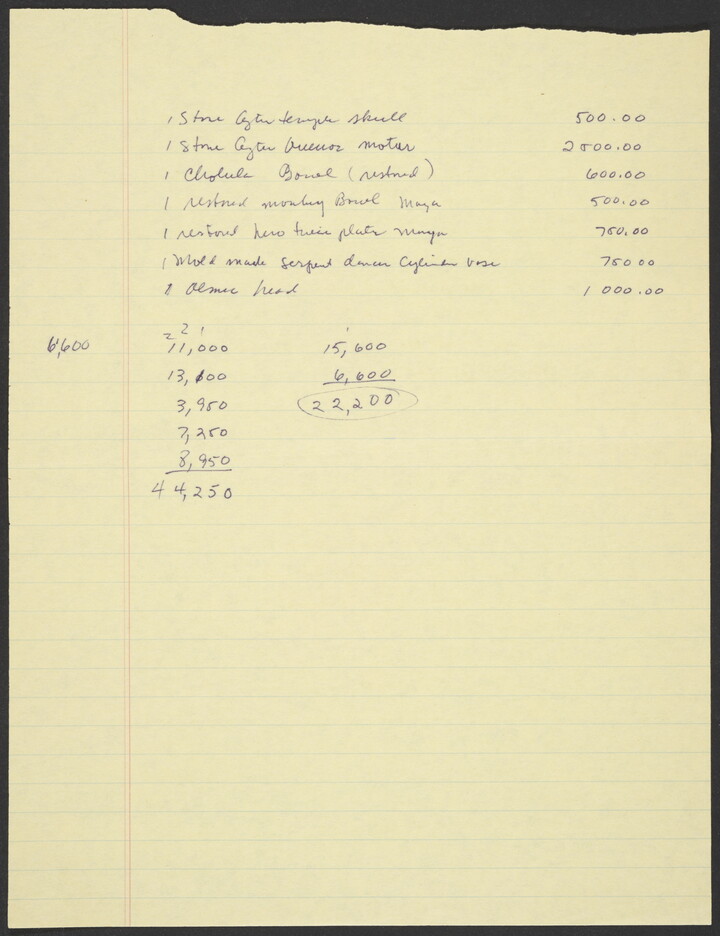 1 Stone Aztec temple skull 500.00
1 Stone Aztec motar 2500.00
1 Cholula Bowl (restored) 600.00
1 restored monkey Bowl Maya 500.00
1 restored hero twin plate Maya 750.00
1 Mold made serpent dancer Cylinder vase 750 00
1 Olmec head 1 000.00
2 2 1
1
6,600 11,000 15,600
13,100 6,600
3,950 22,200
7,250
8,950
44,250